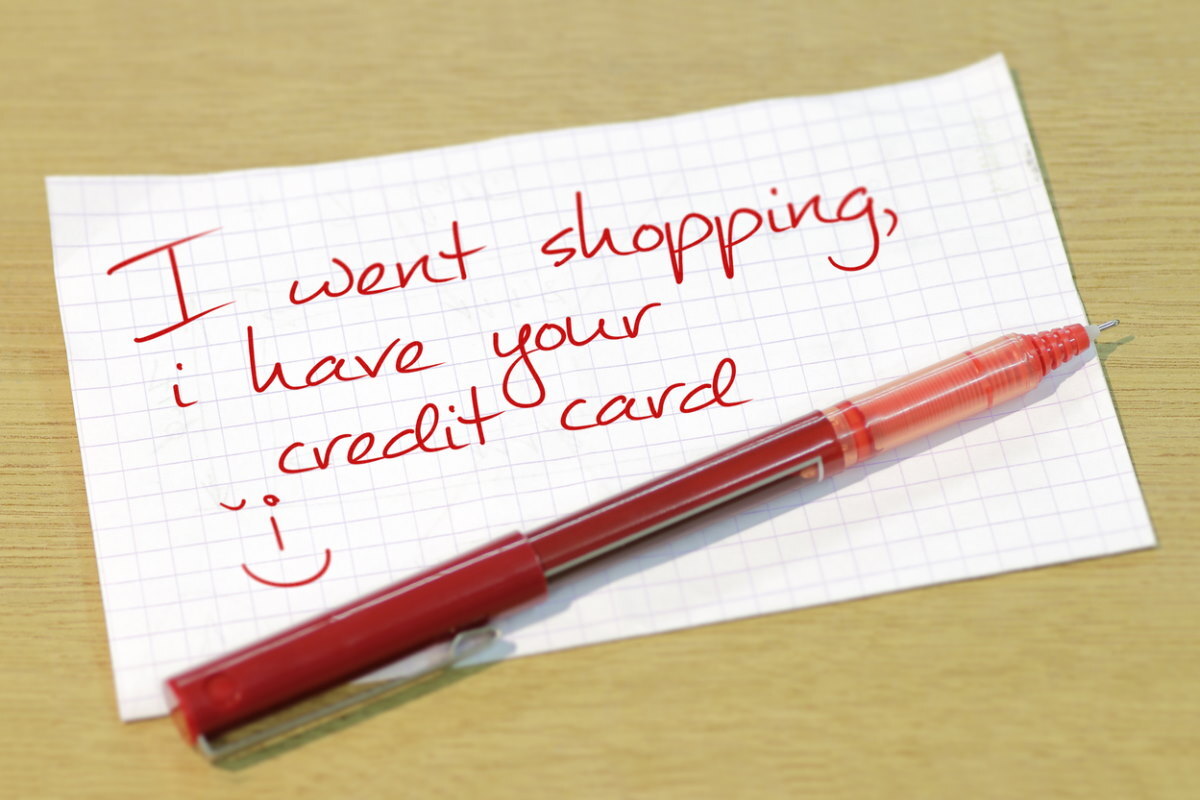 I went shopping,
i have your
credit card